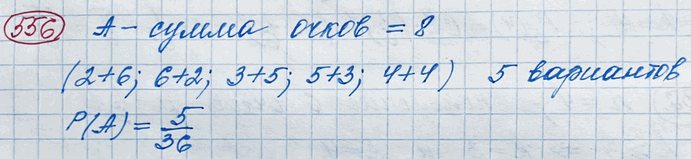 556 A - сумма очков = 8
(2+6; 6+2; 3+5; 5+3; 4+4) 5 вариантов
P(A) = 5/36